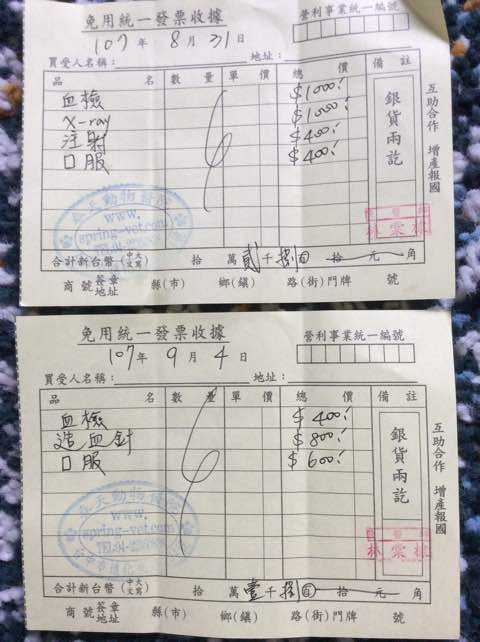 免用統一發票收據
營利事業統一編號
107年 8月 31日
買受人名稱： 地址：
品 名 數 量 單 價 總 價 備 註
血檢 $1000.
X-ray $1000.
注射 $400.
口服 $400.
銀貨兩訖
互助合作 增產報國
春天動物醫院
www.
spring-vet.com
合計新台幣(中文大寫) 拾 萬 貳 千 捌 百 拾 元 角
商號 簽章 地址 縣(市) 鄉(鎮) 路(街)門牌 號
免用統一發票收據
營利事業統一編號
107年 9月 4日
買受人名稱： 地址：
品 名 數 量 單 價 總 價 備 註
血檢 $400.
造血針 $800.
口服 $600.
銀貨兩訖
互助合作 增產報國
春天動物醫院
www.
spring-vet.com
合計新台幣(中文大寫) 拾 萬 壹 千 捌 百 拾 元 角
商號 簽章 地址 縣(市) 鄉(鎮) 路(街)門牌 號